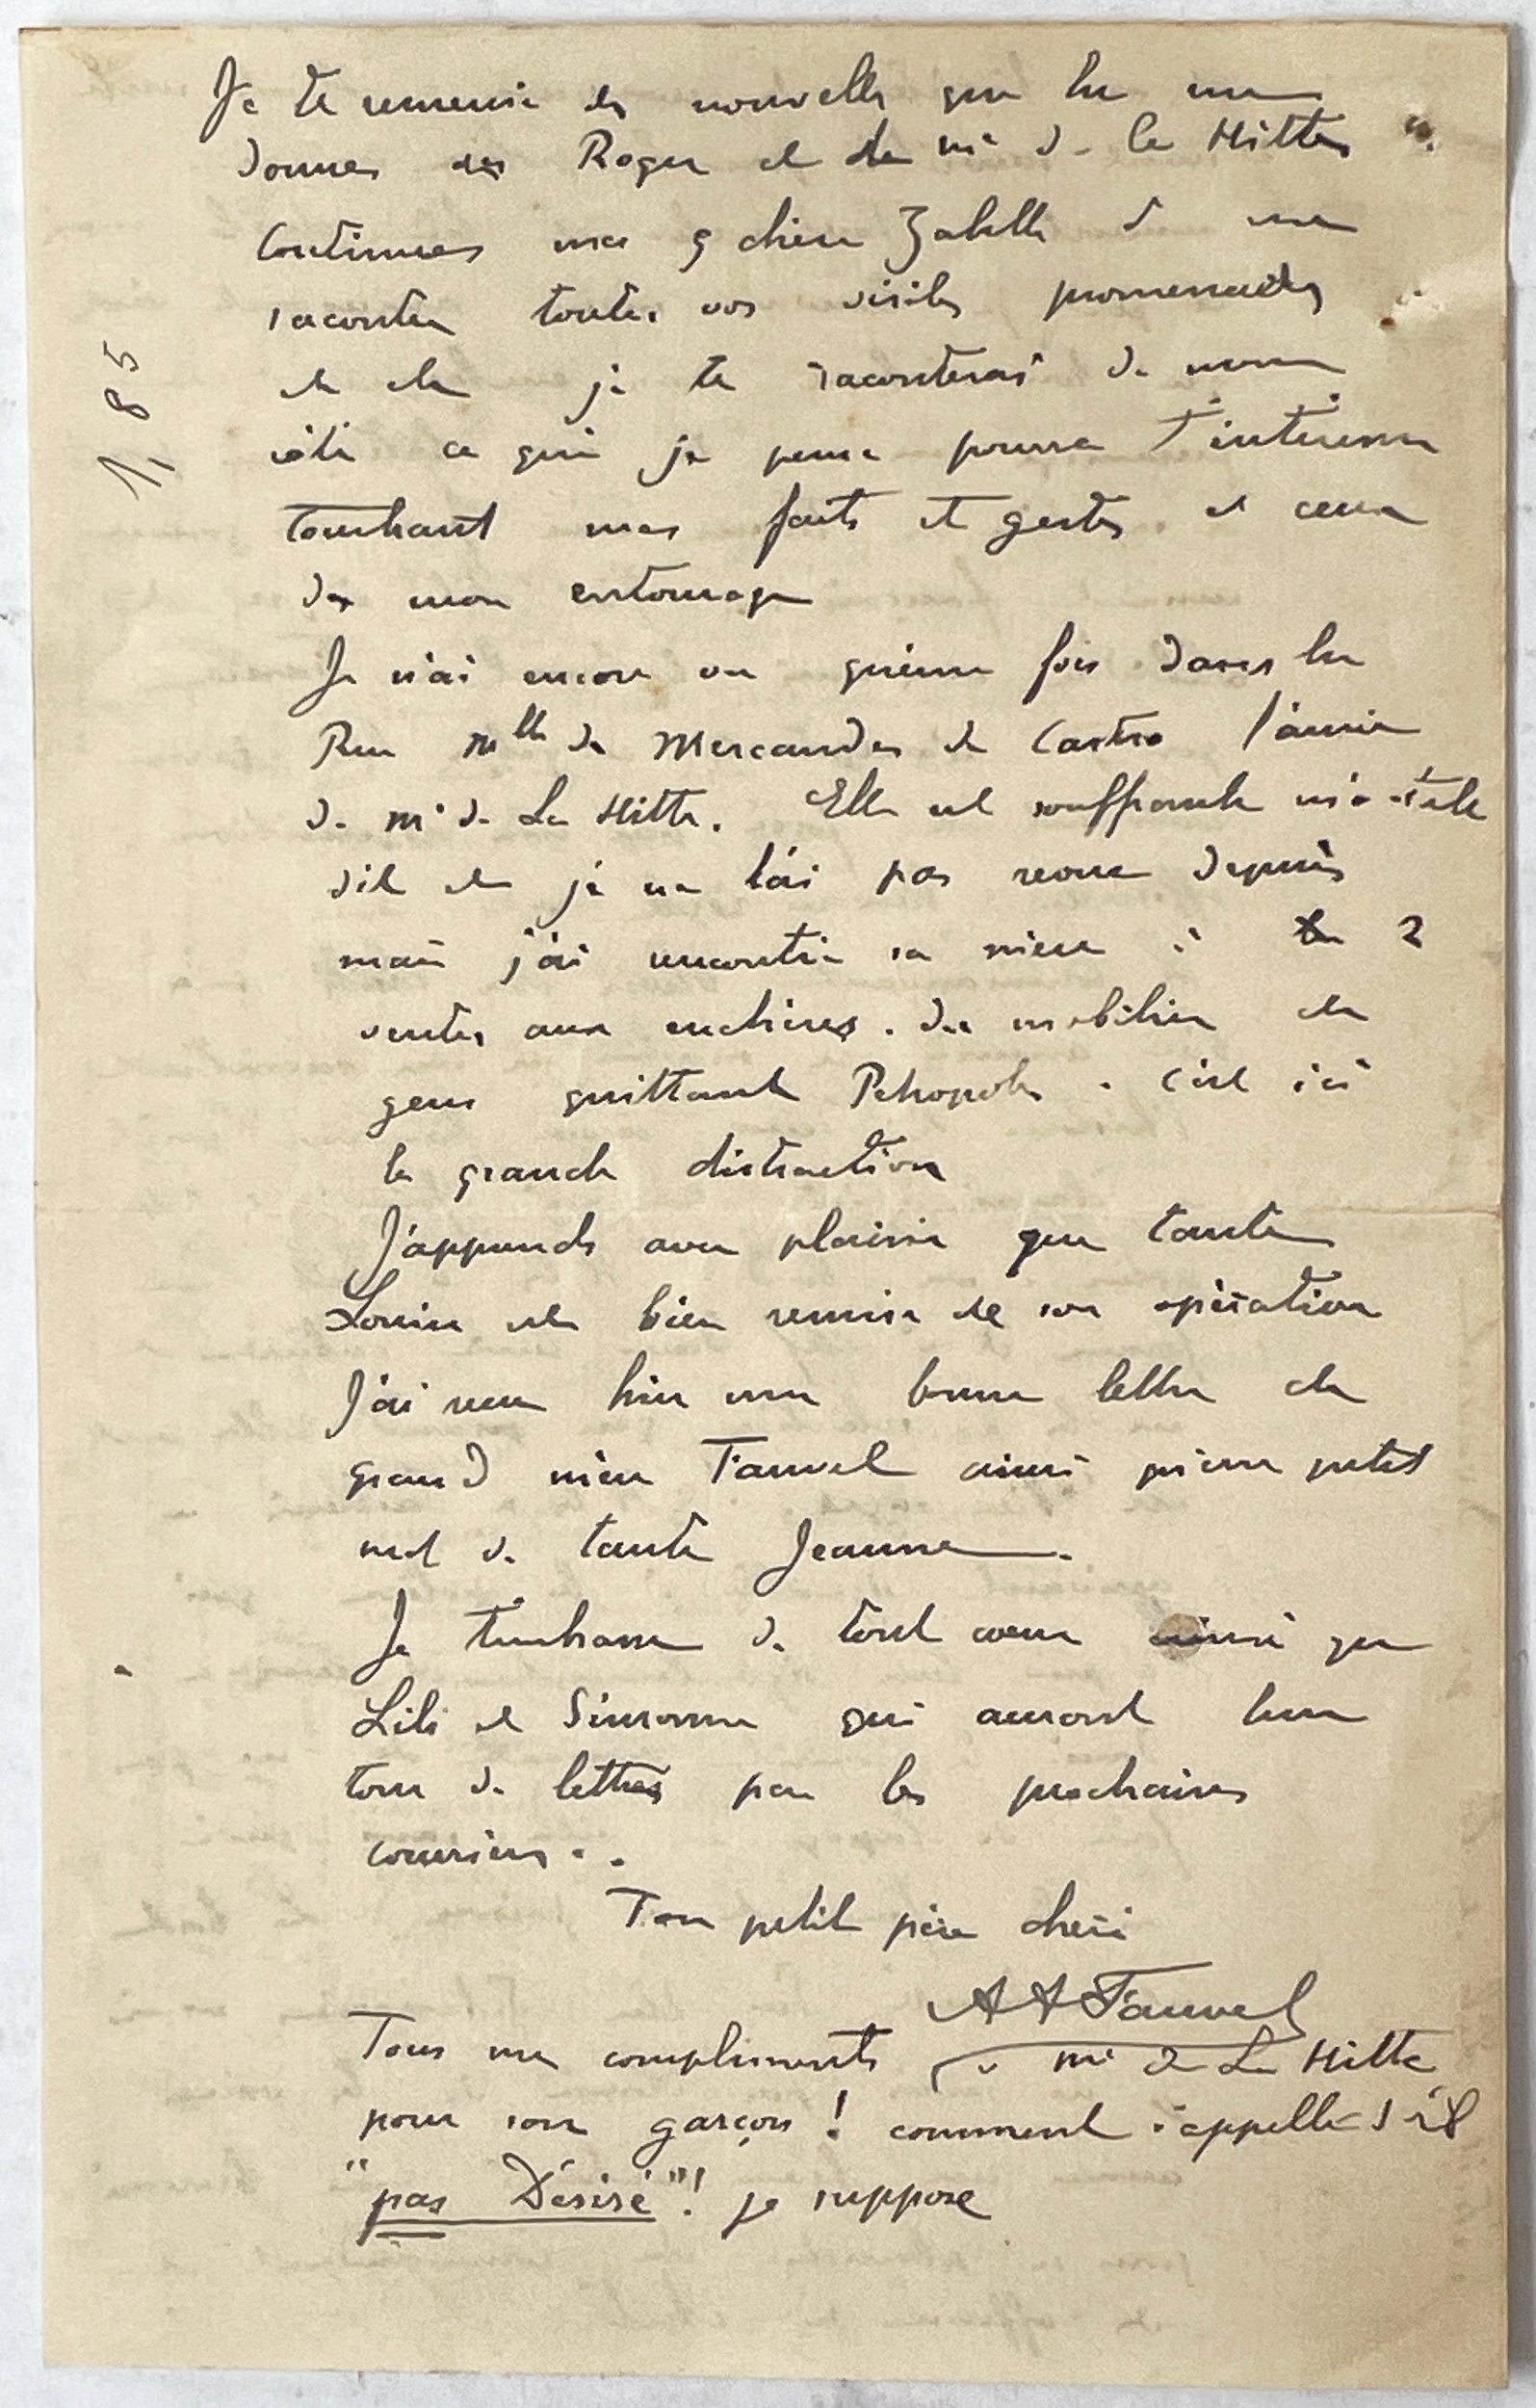 Je te remercie des nouvelles que tu me
donnes des Roger et de Me de la Hitte
Continues ma g chère Zabelle à me
raconter toutes vos visites promenades
et je te raconterai de mon
côté ce que je pense pourra t'intéresser
touchant mes faits et gestes et ceux
de mon entourage
Je n'ai encore vu qu'une fois dans la
Rue Mlle de Mercandes de Castro l'amie
de Me de La Hitte. Elle est souffrante m'a-t-elle
dit et je ne l'ai pas revue depuis
mais j'ai rencontré sa nièce à 2
ventes aux enchères. du mobilier de
gens quittant Petropolis. C'est ici
la grande distraction
J'apprends avec plaisir que tante
Louise est bien remise de son opération
J'ai reçu hier une bonne lettre de
grand mère Fauvel ainsi qu'un petit
mot de tante Jeanne.
Je t'embrasse de tout cœur ainsi que
Lili et Simonne qui auront leur
tour de lettres par les prochains
courriers..
Ton petit père chéri
AA Fauvel
Tous mes compliments à Me de La Hitte
pour son garçon! comment s'appelle t-il
"pas Désiré"! je suppose
1,85